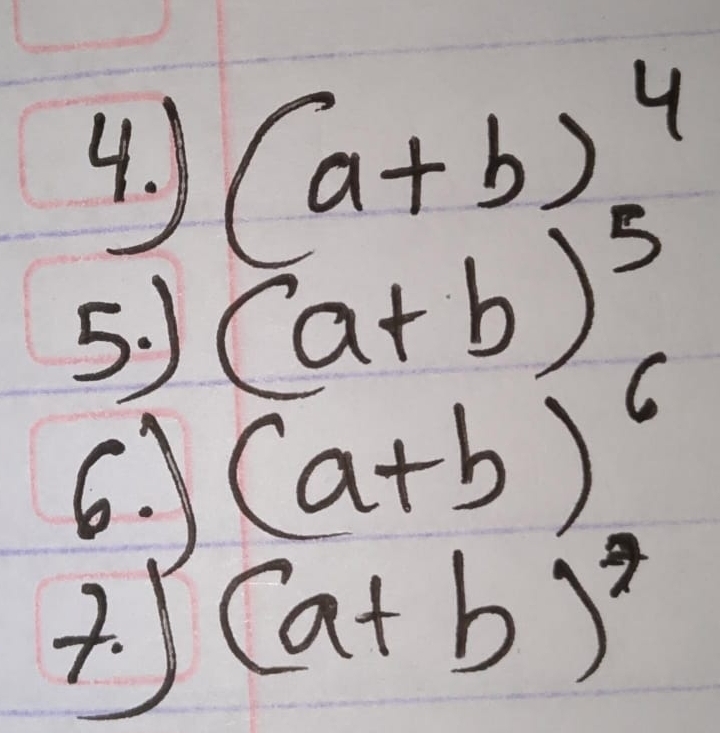 4.) (a+b)⁴
5.) (a+b)⁵
6.) (a+b)⁶
7.) (a+b)⁷